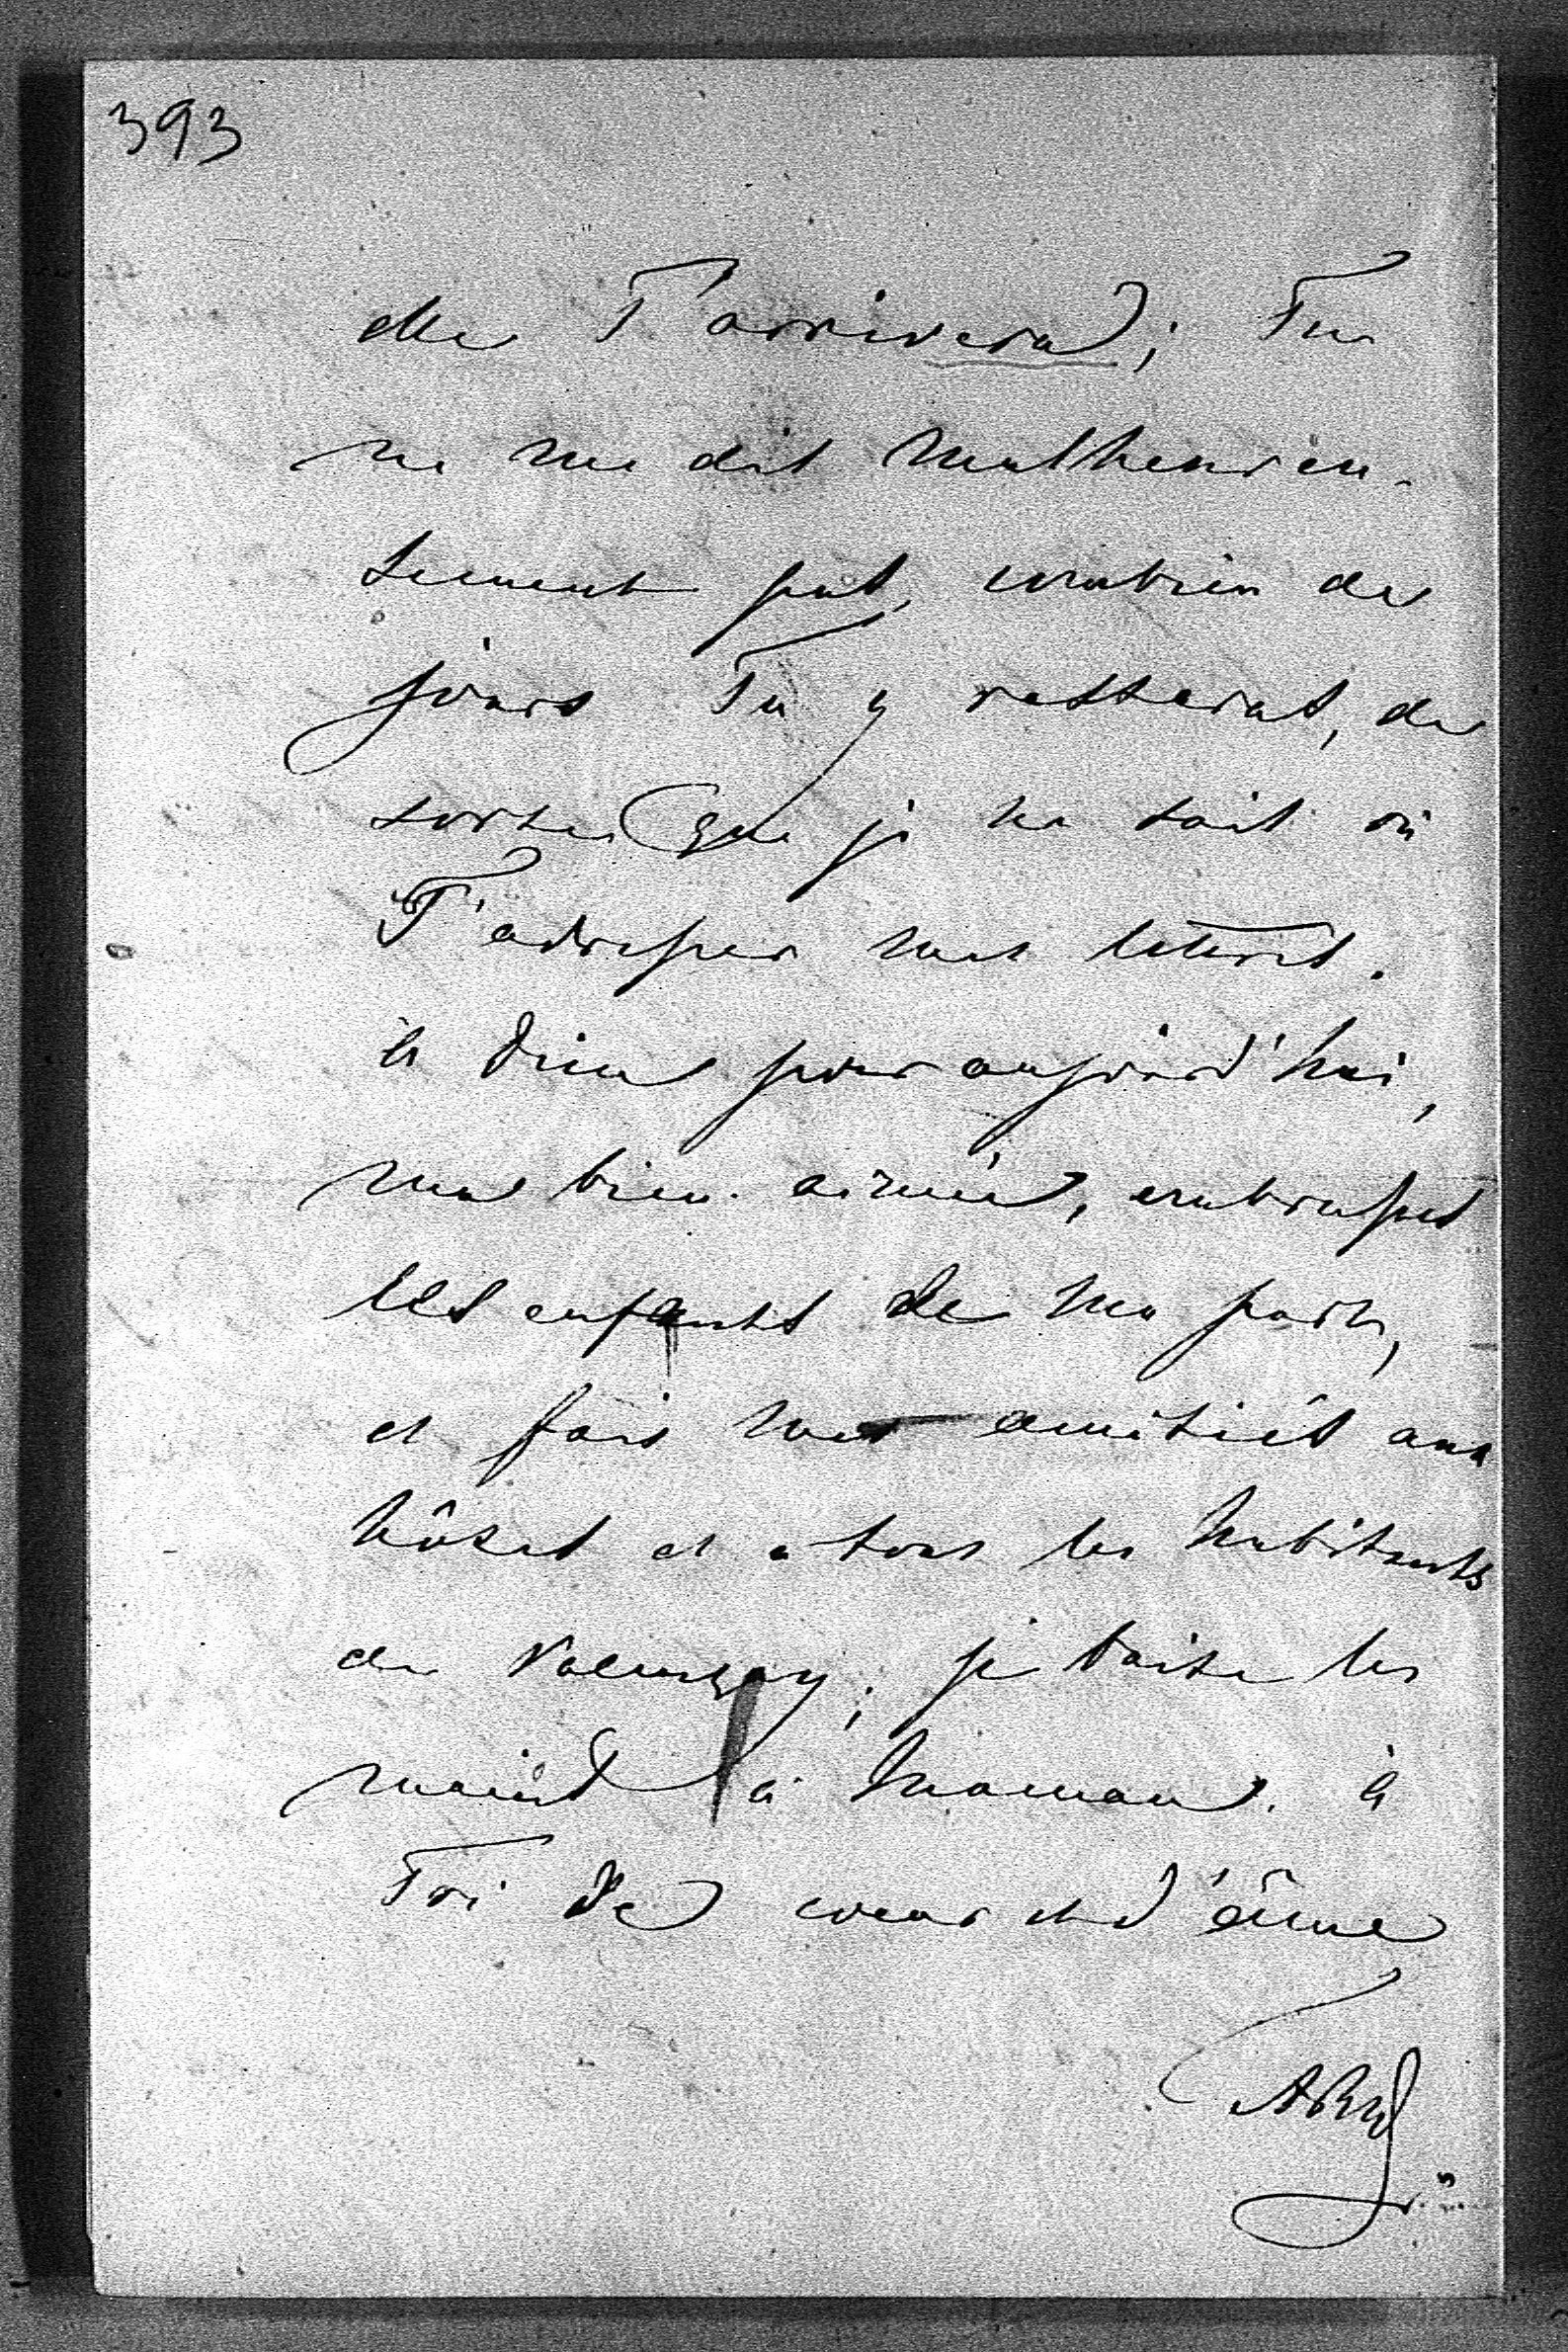 393
elle T'arrivera; Tu
ne me dis malheureu-
sement pas, combien de
jours Tu y resteras, de
sorte que je ne sais où
T'adresser mes lettres.
à Dieu pour aujourd'hui,
ma bien-aimée, embrasses
les enfants de ma part,
et fais mes amitiés aux
hôtes et à tous les habitants
de Valençay; je baise les
mains à Maman. à
Toi de coeur et d'âme